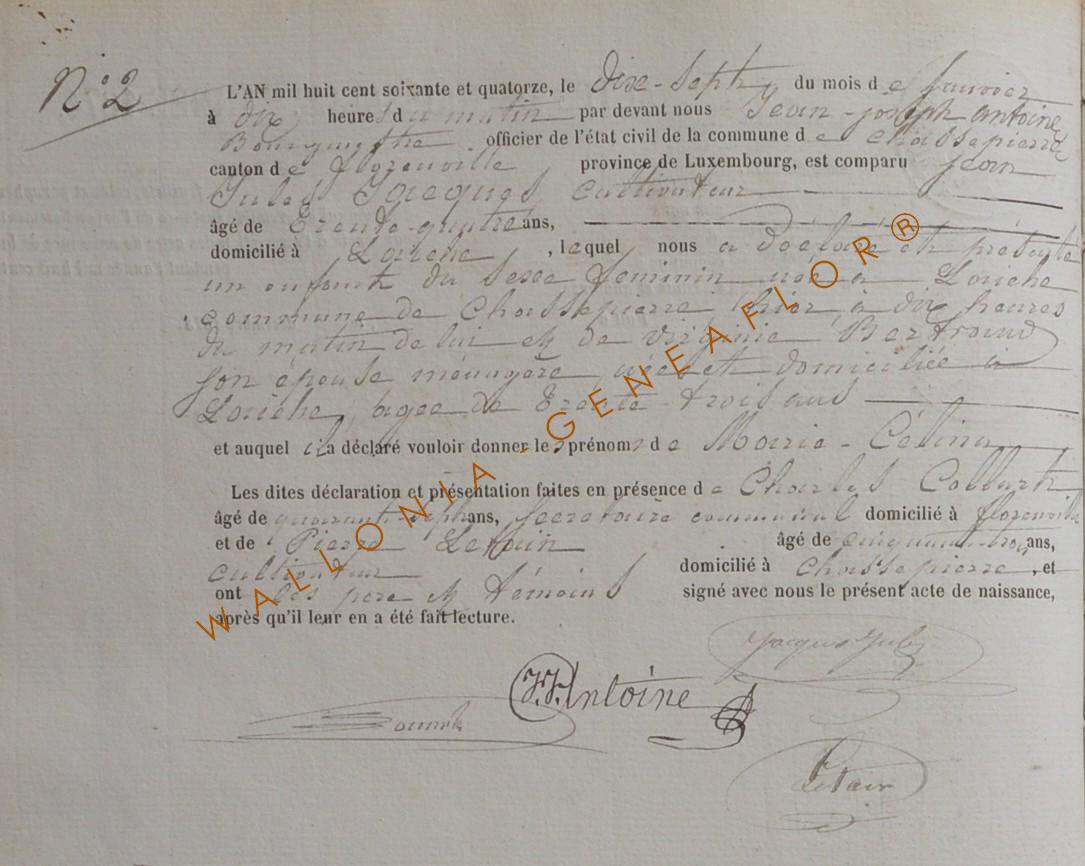 N° 2
L'AN mil huit cent soixante et quatorze, le dix-sept du mois de Janvier
à dix heures du matin par devant nous Jean-Joseph Antoine
Bourgmestre officier de l'état civil de la commune de Chassepierre
canton de Florenville province de Luxembourg, est comparu Jean
Jules Jacques cultivateur
âgé de trente-quatre ans,
domicilié à Laiche, lequel nous a déclaré et présenté
un enfant du sexe féminin née à Laiche
commune de Chassepierre hier à dix heures
du matin de lui et de Virginie Bertrand
son épouse ménagère, née et domiciliée à
Laiche, agée de trente-trois ans
et auquel il a déclaré vouloir donner les prénoms de Marie-Célina
Les dites déclaration et présentation faites en présence de Charles Collark
âgé de quarante-sept ans, secrétaire communal domicilié à Florenville
et de Pierre âgé de cinquante-trois ans,
cultivateur domicilié à Chassepierre, et
ont les père et témoins signé avec nous le présent acte de naissance,
après qu'il leur en a été fait lecture.
Jacques Jules
J.J. Antoine
WALLONIA - GENEAFLOR®